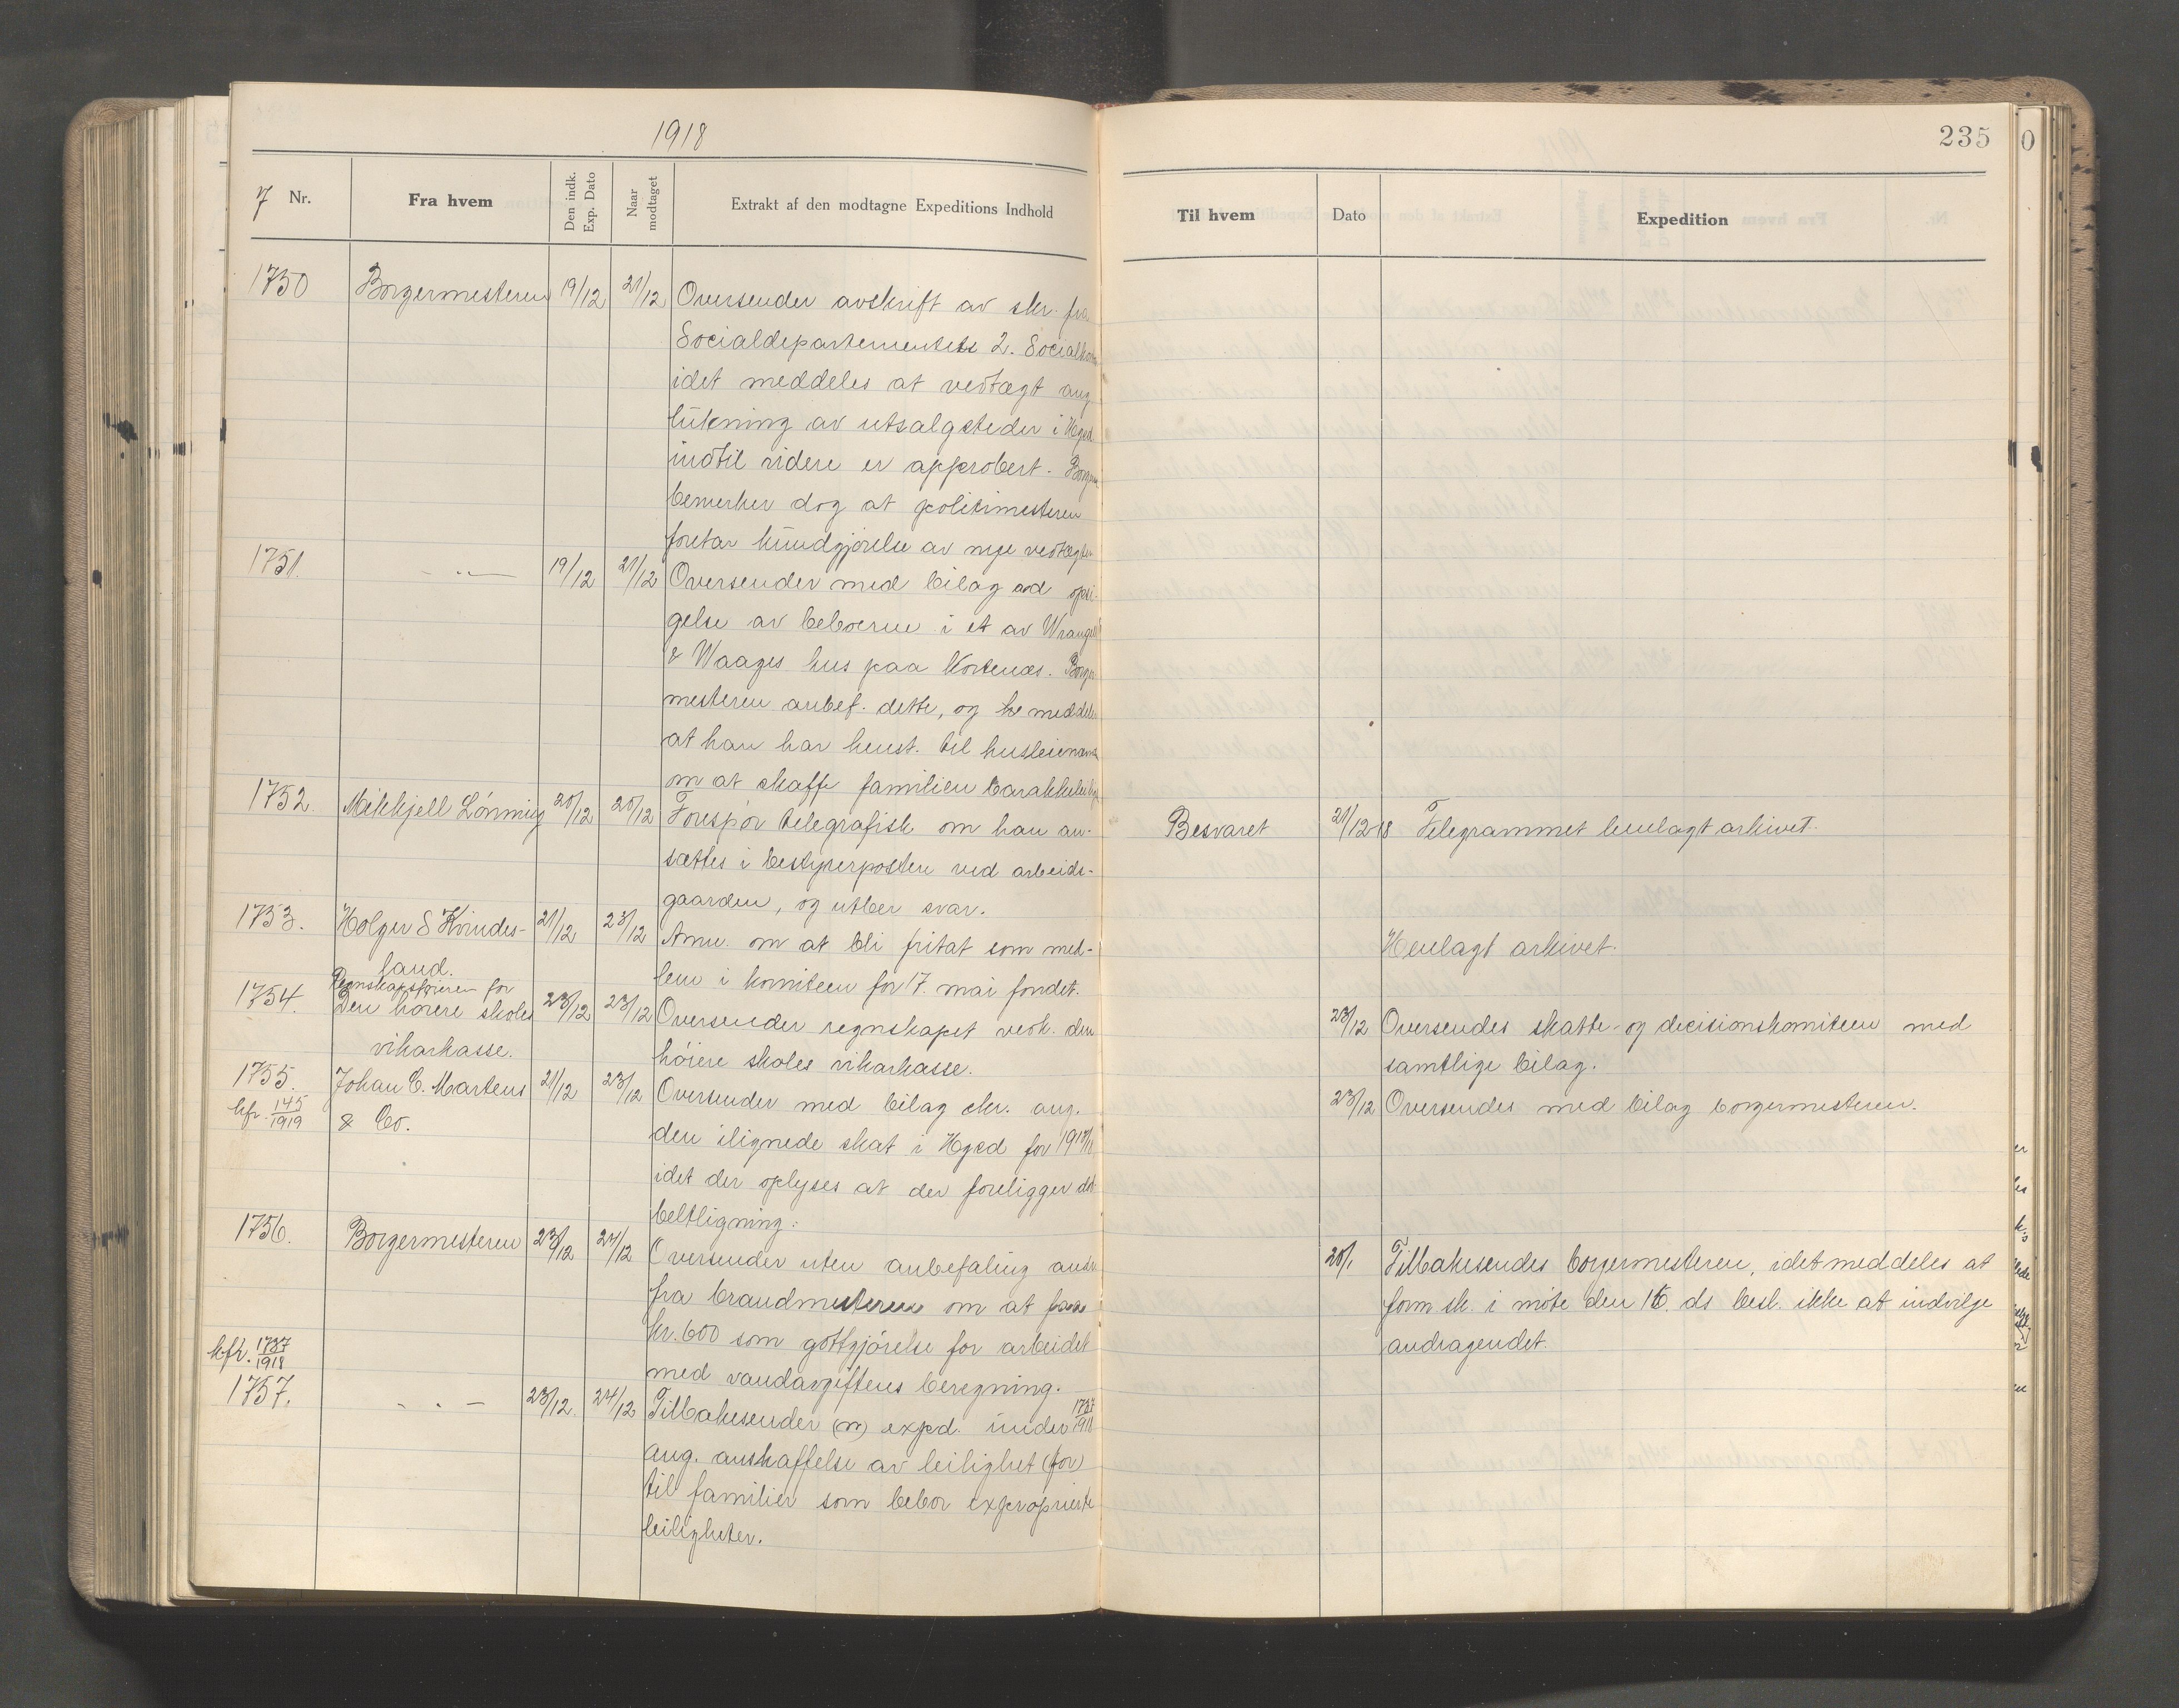 1918
Nr.
Fra hvem
Den indk. Exp. Dato
Naar modtaget
Extrakt af den modtagne Expeditions Indhold
1750 Borgermesteren 19/12 21/12 Oversender avskrift av skr. fra
Socialdepartementets 2. Socialkont.
idet meddeles at vedtægt ang
lukning av utsalgsteder i Hgsd.
indtil videre er approbert. Borgerm
bemerker dog at politimesteren
foretar kundgjørelse av nye vedtægter
1751. - " - 19/12 21/12 Oversender med bilag ad opsi-
gelse av beboerne i et av Wrangell
& Waages hus paa Nortenæs. Borger
mesteren anbef. dette, og meddeler
at han har henst. til husleienævn
om at skaffe familien barakkeleilig
1752. Mikkjell Lönning 20/12 20/12 Forespör telegrafisk om han an-
sættes i bestyrerposten ved arbeids-
gaarden, og utber svar.
1753. Holger S Kvindes- 21/12 23/12 Anm. om at bli fritat som med-
land.
lem i komiteen for 17. mai fondet.
Regnskapsføreren for
1754. Den høiere skoles 23/12 23/12 Oversender regnskapet vedk. den
vikarkasse.
höiere skoles vikarkasse.
1755. Johan C. Martens 21/12 23/12 Oversender med bilag skr. ang.
kfr. 145/1919 & Co.
den ilignede skat i Hgsd for 1917/18
idet der oplyses at der foreligger dob
beltligning.
1756. Borgermesteren 23/12 24/12 Oversender uten anbefaling andr
fra brandmesteren om at faa
kr. 600 som godtgjörelse for arbeidet
med vandavgiftens beregning.
kfr. 1737/1918
1757. - " - 23/12. 24/12 Tilbakesender (m) exped. under 1737/1918
ang. anskaffelse av leilighet (for)
til familier som bebor exproprierte
leiligheter.
235
Til hvem
Dato
Expedition
Besvaret 21/12 18 Telegrammet henlagt arkivet.
Henlagt arkivet.
23/12 Oversendes skatte- og decisionskomiteen med
samtlige bilag.
23/12 Oversendes med bilag borgermesteren.
20/1 Tilbakesendes borgermesteren, idet meddeles at
form.sk. i möte den 16. ds besl. ikke at indvilge
andragendet.